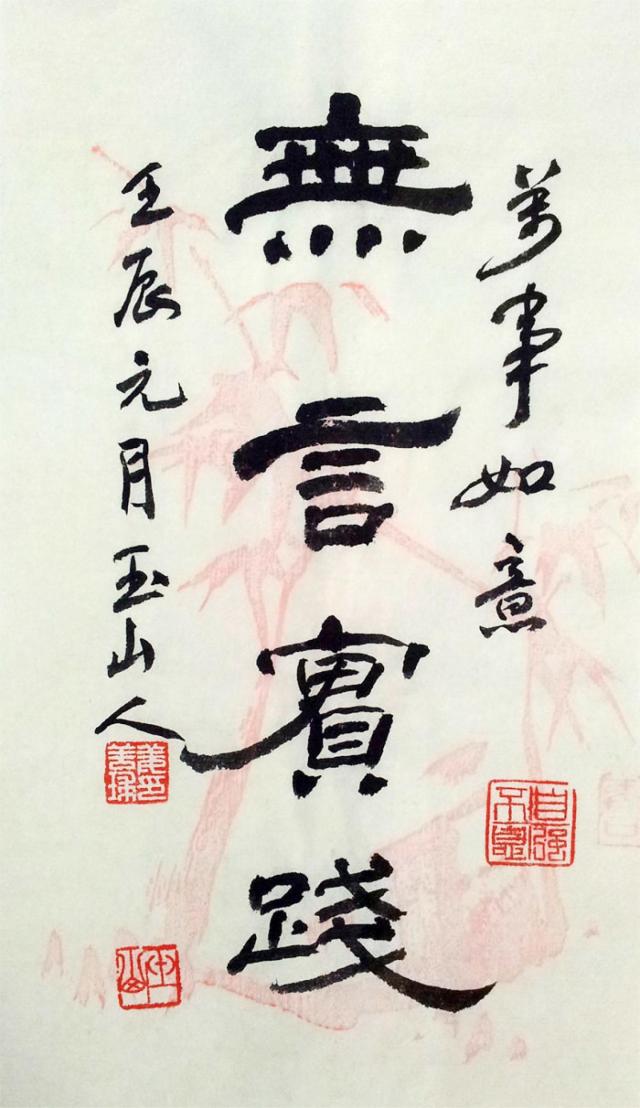 萬事如意
自强不息
無言實踐
壬辰元月玉山人